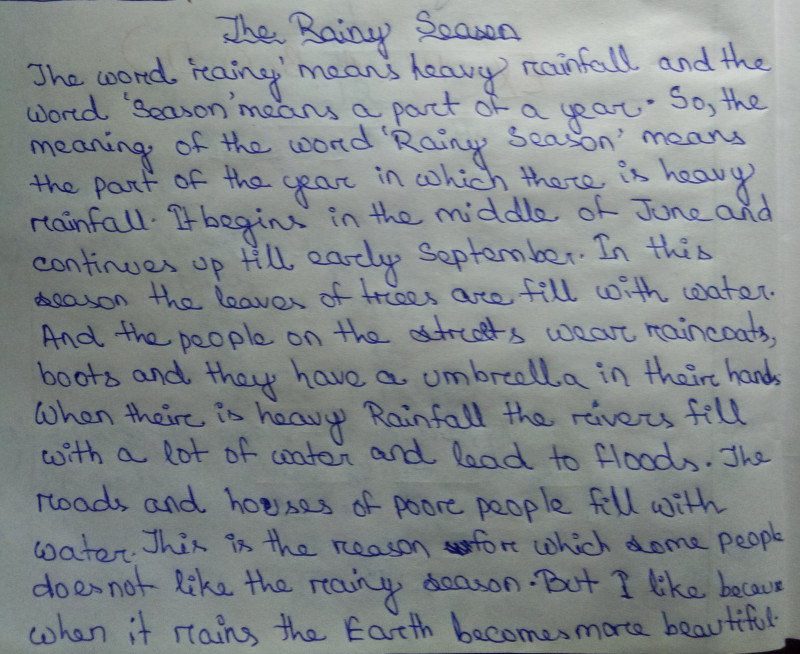 The Rainy Season
The word 'rainy' means heavy rainfall and the
word 'Season' means a part of a year. So, the
meaning of the word 'Rainy Season' means
the part of the year in which there is heavy
rainfall. It begins in the middle of June and
continues up till early September. In this
season the leaves of trees are fill with water.
And the people on the streets wear raincoats,
boots and they have a umbrella in their hands
When their is heavy Rainfall the rivers fill
with a lot of water and lead to floods. The
roads and houses of poor people fill with
water. This is the reason for which some people
does not like the rainy season. But I like because
when it rains the Earth becomes more beautiful.